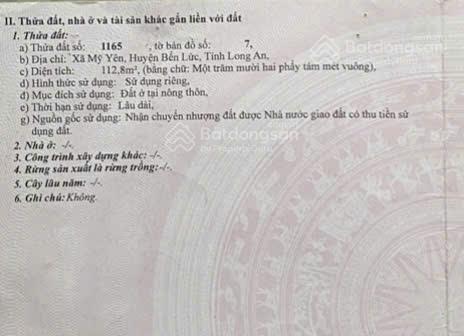 II. Thửa đất, nhà ở và tài sản khác gắn liền với đất
1. Thửa đất:
a) Thửa đất số: 1165 , tờ bản đồ số: 7,
b) Địa chỉ: Xã Mỹ Yên, Huyện Bến Lức, Tỉnh Long An,
c) Diện tích: 112,8m², (bằng chữ: Một trăm mười hai phẩy tám mét vuông),
d) Hình thức sử dụng: Sử dụng riêng,
đ) Mục đích sử dụng: Đất ở tại nông thôn,
e) Thời hạn sử dụng: Lâu dài,
g) Nguồn gốc sử dụng: Nhận chuyển nhượng đất được Nhà nước giao đất có thu tiền sử
dụng đất.
2. Nhà ở: -/-.
3. Công trình xây dựng khác: -/-.
4. Rừng sản xuất là rừng trồng:-/-.
5. Cây lâu năm: -/-.
6. Ghi chú: Không.
Batdongsan
Batdongsan